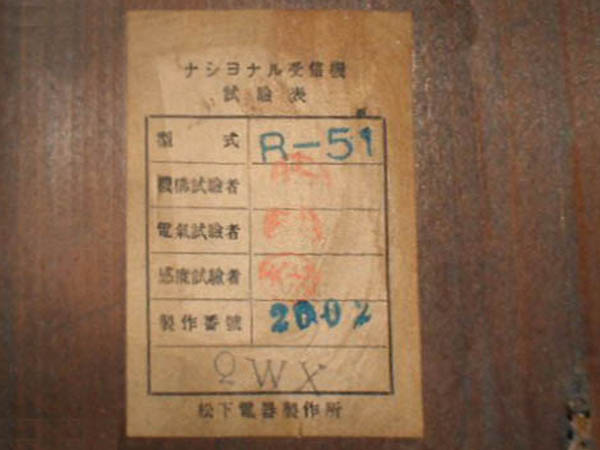 ナシヨナル受信機
試驗表
型式 R-51
機構試驗者
電氣試驗者
感度試驗者
製作番號 2002
QWX
松下電器製作所